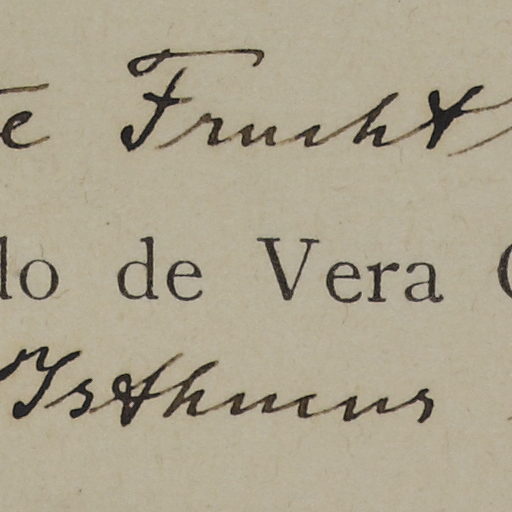 te Frucht
lo de Vera C
Isthmus